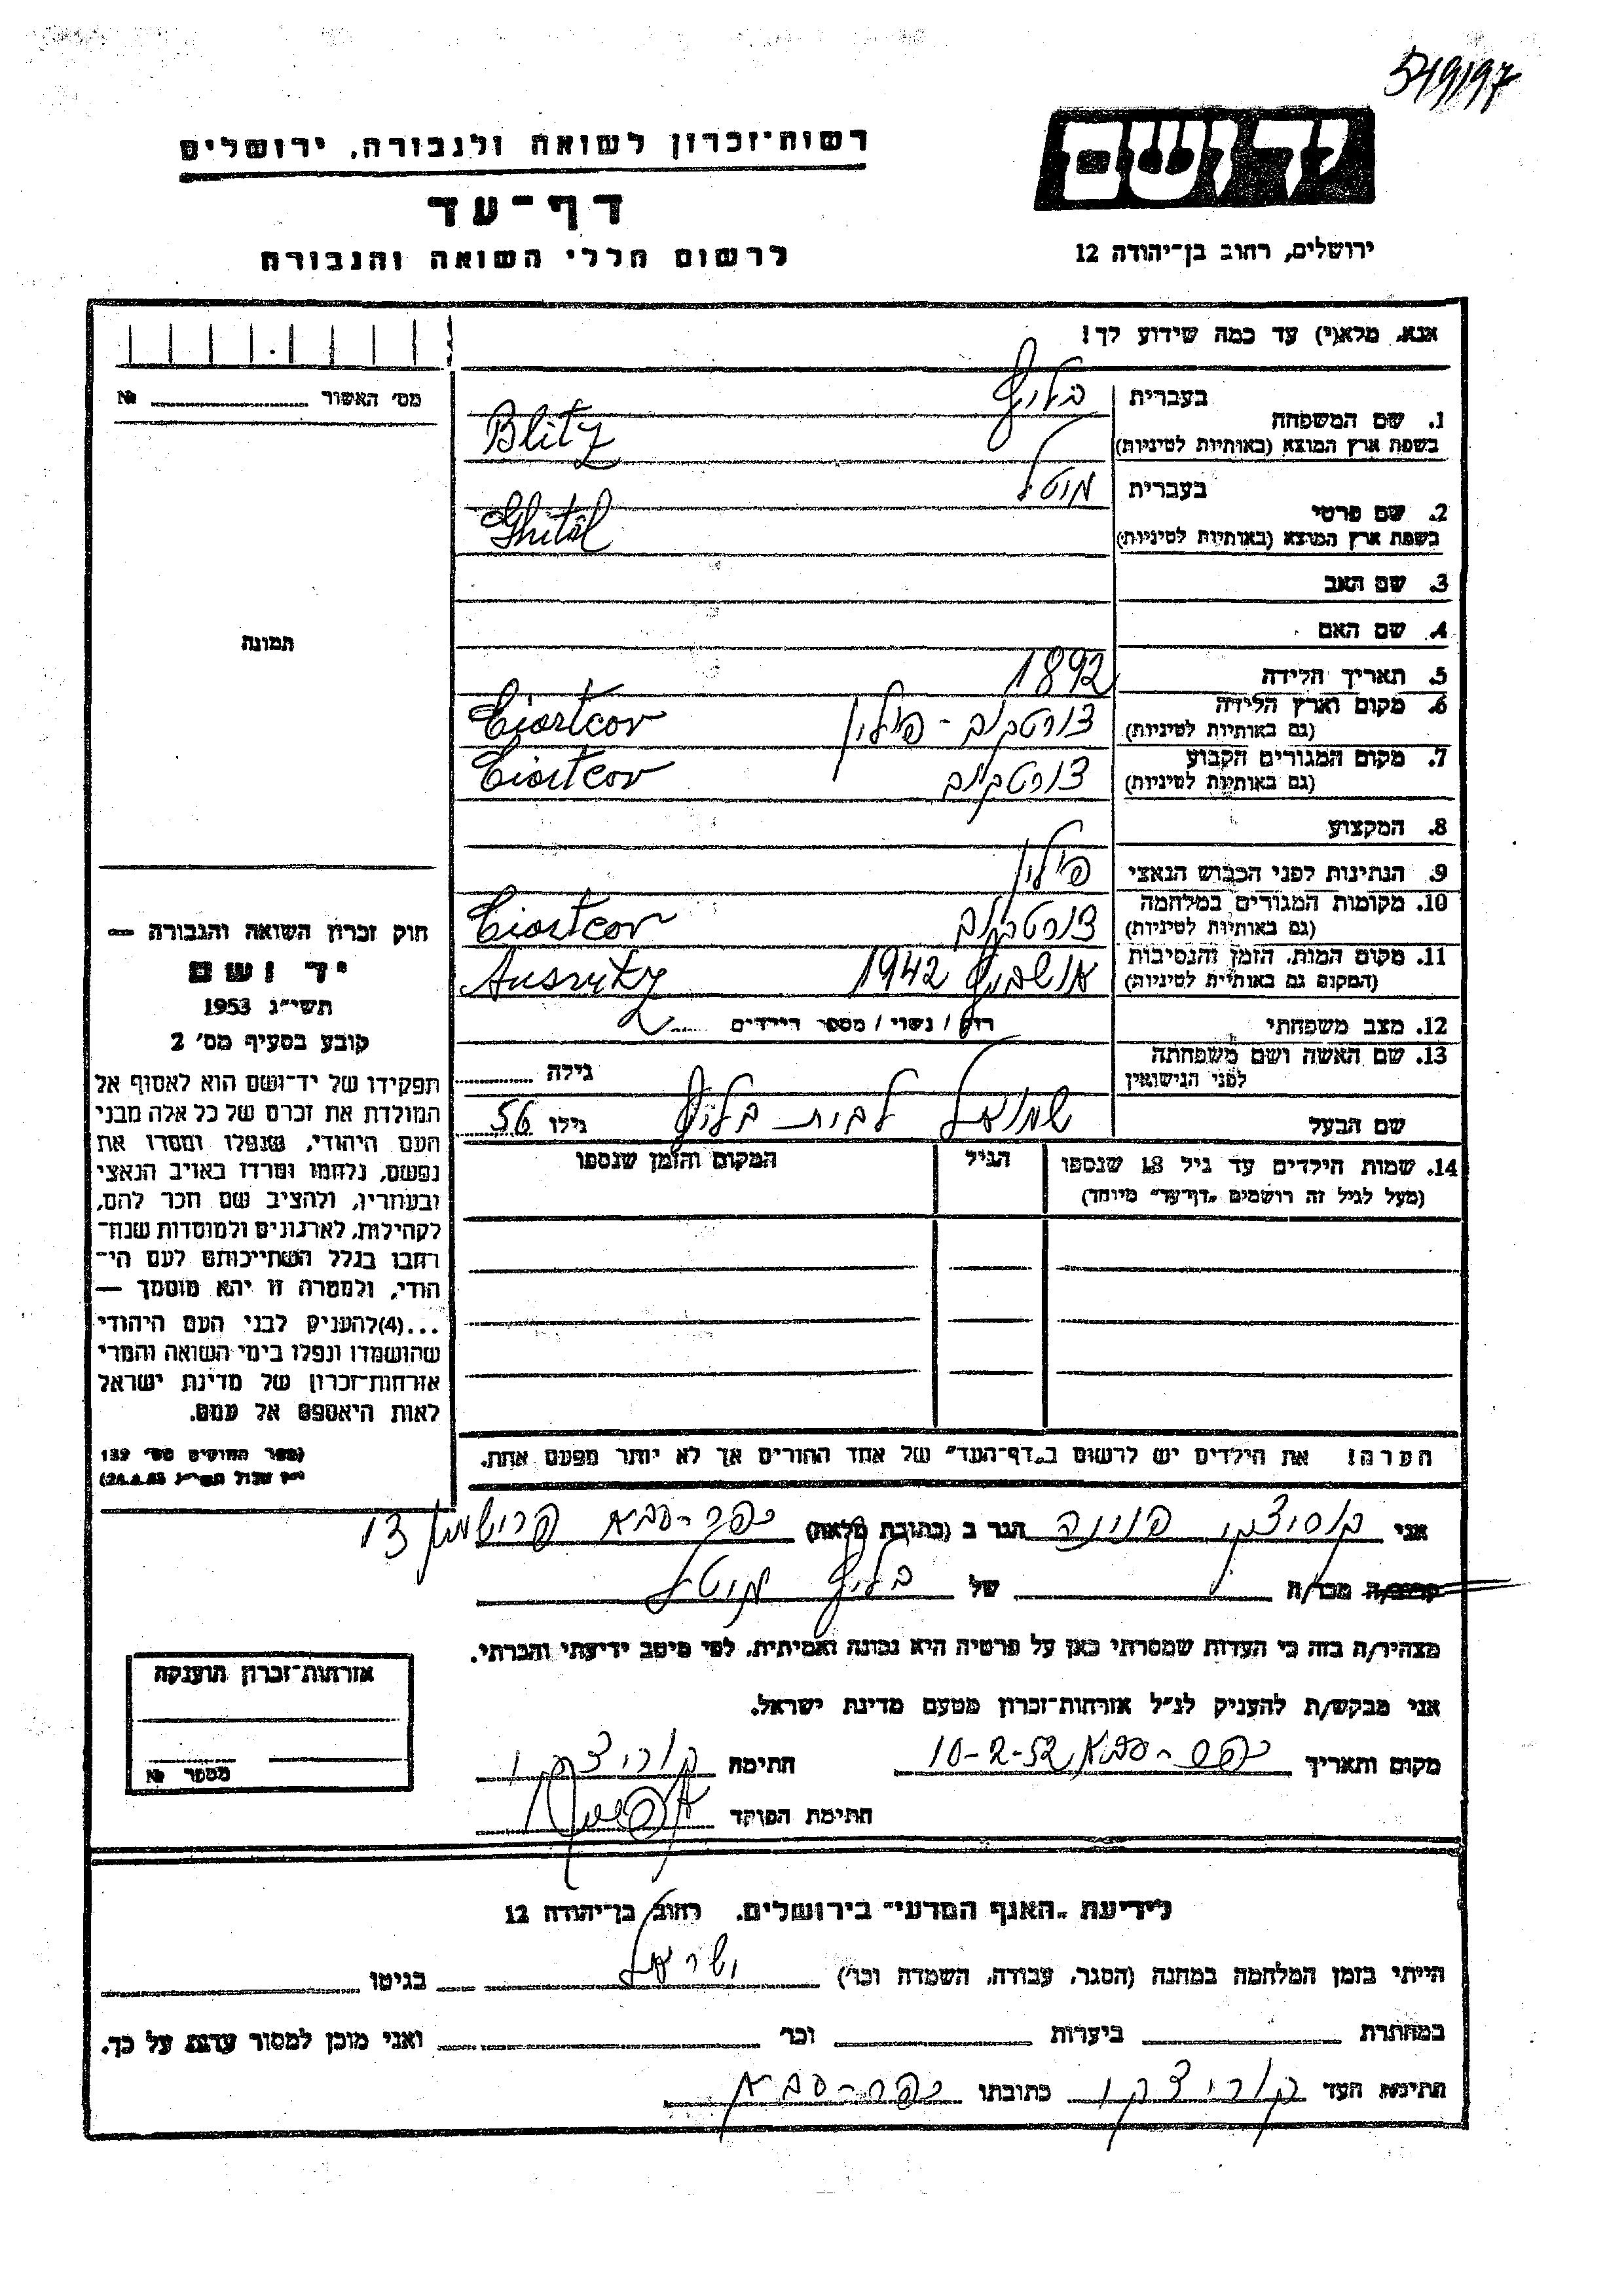 5/9/97
יד ושם
ירושלים, רחוב בן־יהודה 12
רשות־זכרון לשואה ולגבורה, ירושלים
דף־עד
לרשום חללי השואה והגבורה
אנא, מלא(י) עד כמה שידוע לך!
1. שם המשפחה בעברית בליץ
בשפת ארץ המוצא (באותיות לטיניות) Blitz
2. שם פרטי בעברית
בשפת ארץ המוצא (באותיות לטיניות) Ghitel
3. שם האב
4. שם האם
5. תאריך הלידה 1892
6. מקום וארץ הלידה צורטקוב - פולין Ciortcov
(גם באותיות לטיניות)
7. מקום המגורים הקבוע צורטקוב Ciortcov
(גם באותיות לטיניות)
8. המקצוע
9. הנתינות לפני הכבוש הנאצי פולין
10. מקומות המגורים במלחמה צורטקוב Ciortcov
(גם באותיות לטיניות)
11. מקום המות, הזמן והנסיבות אושביץ 1942
(המקום גם באותיות לטיניות)
12. מצב משפחתי רוק / נשוי / מספר הילדים 2
13. שם האשה ושם משפחתה
לפני הנישואין גילה
שם הבעל שמואל לבית בליץ גילו 56
14. שמות הילדים עד גיל 18 שנספו הגיל המקום והזמן שנספו
(מעל לגיל זה רושמים "דף־עד" מיוחד)
הערה! את הילדים יש לרשום ב"דף־העד" של אחד ההורים אך לא יותר מפעם אחת.
מס' האשור №
תמונה
חוק זכרון השואה והגבורה —
יד ושם
תשי"ג 1953
קובע בסעיף מס' 2
תפקידו של יד־ושם הוא לאסוף אל
המולדת את זכרם של כל אלה מבני
העם היהודי, שנפלו ומסרו את
נפשם, נלחמו ומרדו באויב הנאצי
ובעוזריו, ולהציב שם וזכר להם,
לקהילות, לארגונים ולמוסדות שנח־
רבו בגלל השתייכותם לעם הי־
הודי, ולמטרה זו יהא מוסמך —
...(4) להעניק לבני העם היהודי
שהושמדו ונפלו בימי השואה והמרי
אזרחות־זכרון של מדינת ישראל
לאות היאספם אל עמם.
(ספר החוקים מס' 132
אני פנינה הגר ב (כתובת מלאה) כפר-סבא 13
קרוב/ה מכר/ה של בליץ
מצהיר/ה בזה כי העדות שמסרתי כאן על פרטיה היא נכונה ואמיתית, לפי מיטב ידיעתי והכרתי.
אני מבקש/ת להעניק לנ"ל אזרחות־זכרון מטעם מדינת ישראל.
מקום ותאריך כפר-סבא 10-2-52 חתימה
חתימת הפוקד
אזרחות־זכרון הוענקה
מספר №
לידיעת "האגף המדעי" בירושלים, רחוב בן־יהודה 12
הייתי בזמן המלחמה במחנה (הסגר, עבודה, השמדה וכו') ישראל בגיטו
במחתרת ביערות וכו' ואני מוכן למסור עדות על כך.
חתימת העד כתובתו כפר-סבא